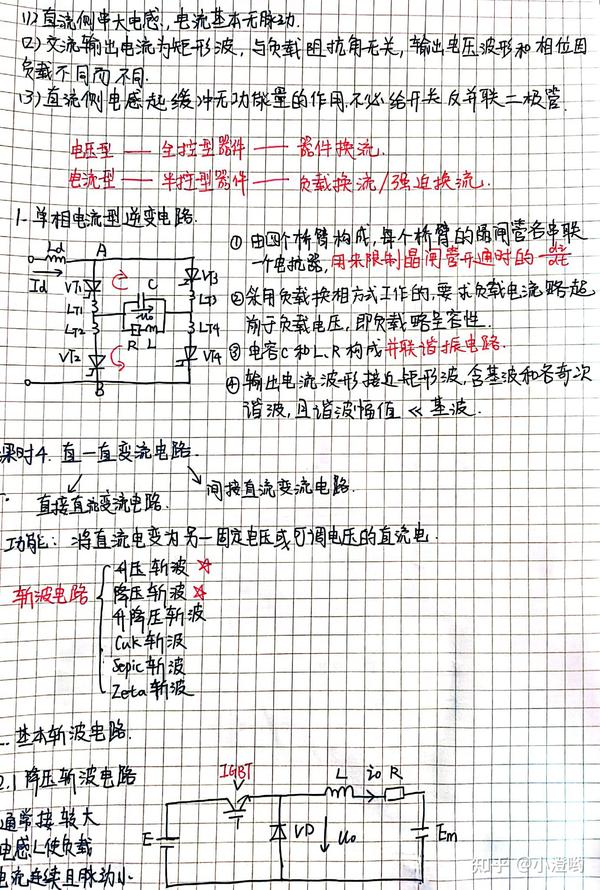 (1)直流侧串大电感,电流基本无脉动.
(2)交流输出电流为矩形波,与负载阻抗角无关,输出电压波形和相位因
负载不同而不同.
(3)直流侧电感起缓冲无功能量的作用,不必给开关反并联二极管.
电压型 — 全控型器件 — 器件换流.
电流型 — 半控型器件 — 负载换流/强迫换流.
1. 单相电流型逆变电路.
Ld A
Id VT1 C VT3
LT1 LT3
LT2 R L LT4
VT2 VT4
B
① 由四个桥臂构成,每个桥臂的晶闸管各串联
一个电抗器,用来限制晶闸管开通时的 di/dt
②采用负载换相方式工作的,要求负载电流略超
前于负载电压,即负载略呈容性.
③ 电容C和L、R构成并联谐振电路.
④ 输出电流波形接近矩形波,含基波和各奇次
谐波,且谐波幅值 << 基波.
课时4. 直—直变流电路.
直接直流变流电路.
间接直流变流电路.
功能: 将直流电变为另一固定电压或可调电压的直流电.
斩波电路
升压斩波 ☆
降压斩波 ☆
升降压斩波
Cuk 斩波
Sepic 斩波
Zeta 斩波
基本斩波电路.
2.1 降压斩波电路
通常接较大
电感L使负载
电流连续且脉动小
IGBT L io R
E VD uo Em
知乎 @小澄哟